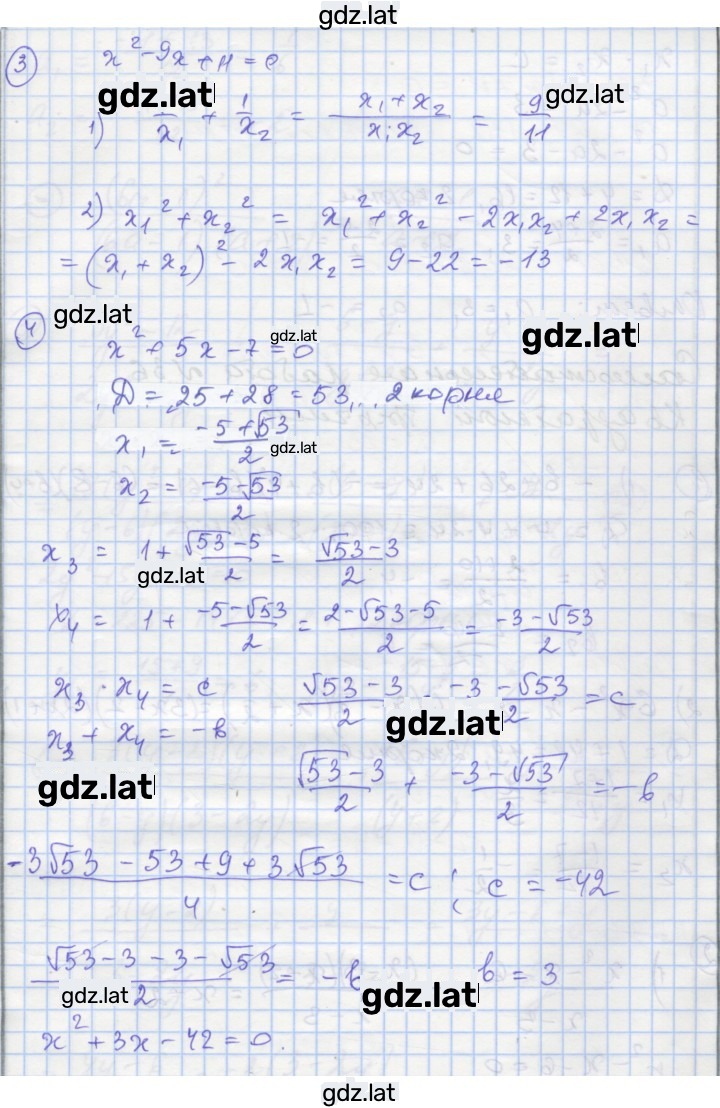 gdz.lat
③ x² - 9x + 11 = 0
gdz.lat gdz.lat
1) 1/x₁ + 1/x₂ = (x₁ + x₂)/(x₁x₂) = 9/11
2) x₁² + x₂² = x₁² + x₂² - 2x₁x₂ + 2x₁x₂ =
= (x₁ + x₂)² - 2x₁x₂ = 9 - 22 = -13
gdz.lat gdz.lat gdz.lat
④ x² + 5x - 7 = 0
Д = 25 + 28 = 53, 2 корня
x₁ = (-5 + √53)/2
gdz.lat
x₂ = (-5 - √53)/2
x₃ = 1 + (√53 - 5)/2 = (√53 - 3)/2
gdz.lat
x₄ = 1 + (-5 - √53)/2 = (2 - √53 - 5)/2 = (-3 - √53)/2
x₃ · x₄ = c (√53 - 3)/2 · (-3 - √53)/2 = c
gdz.lat
x₃ + x₄ = -b
gdz.lat
(√53 - 3)/2 + (-3 - √53)/2 = -b
(-3√53 - 53 + 9 + 3√53)/4 = c ; c = -42
(√53 - 3 - 3 - √53)/2 = -b b = 3
gdz.lat gdz.lat
x² + 3x - 42 = 0.
gdz.lat